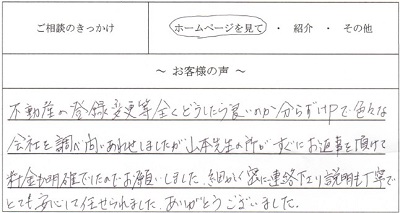 ご相談のきっかけ
ホームページを見て ・ 紹介 ・ その他
～ お客様の声 ～
不動産の登録変更等全くどうしたら良いのか分らずHPで色々な
会社を調べ問い合わせしましたが山本先生の所がすぐにお返事を頂けて
料金も明確でしたのでお願いしました。細かく密に連絡下さり説明も丁寧で
とても安心して任せられました。ありがとうございました。